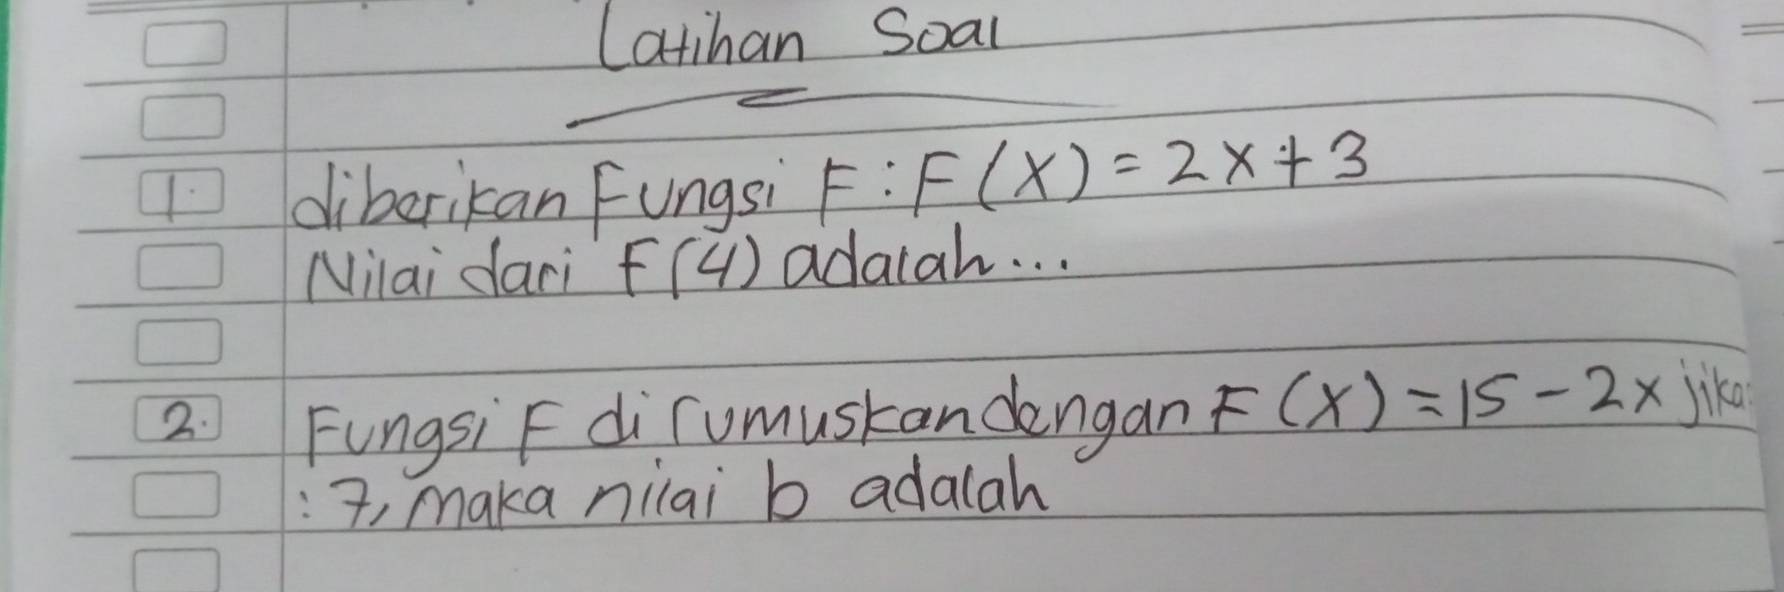 Latihan Soal
1. diberikan Fungsi F : F(X) = 2x + 3
Nilai dari F(4) adalah...
2. Fungsi F di rumuskan dengan F(X) = 15 - 2x jika
: 7, maka nilai b adalah